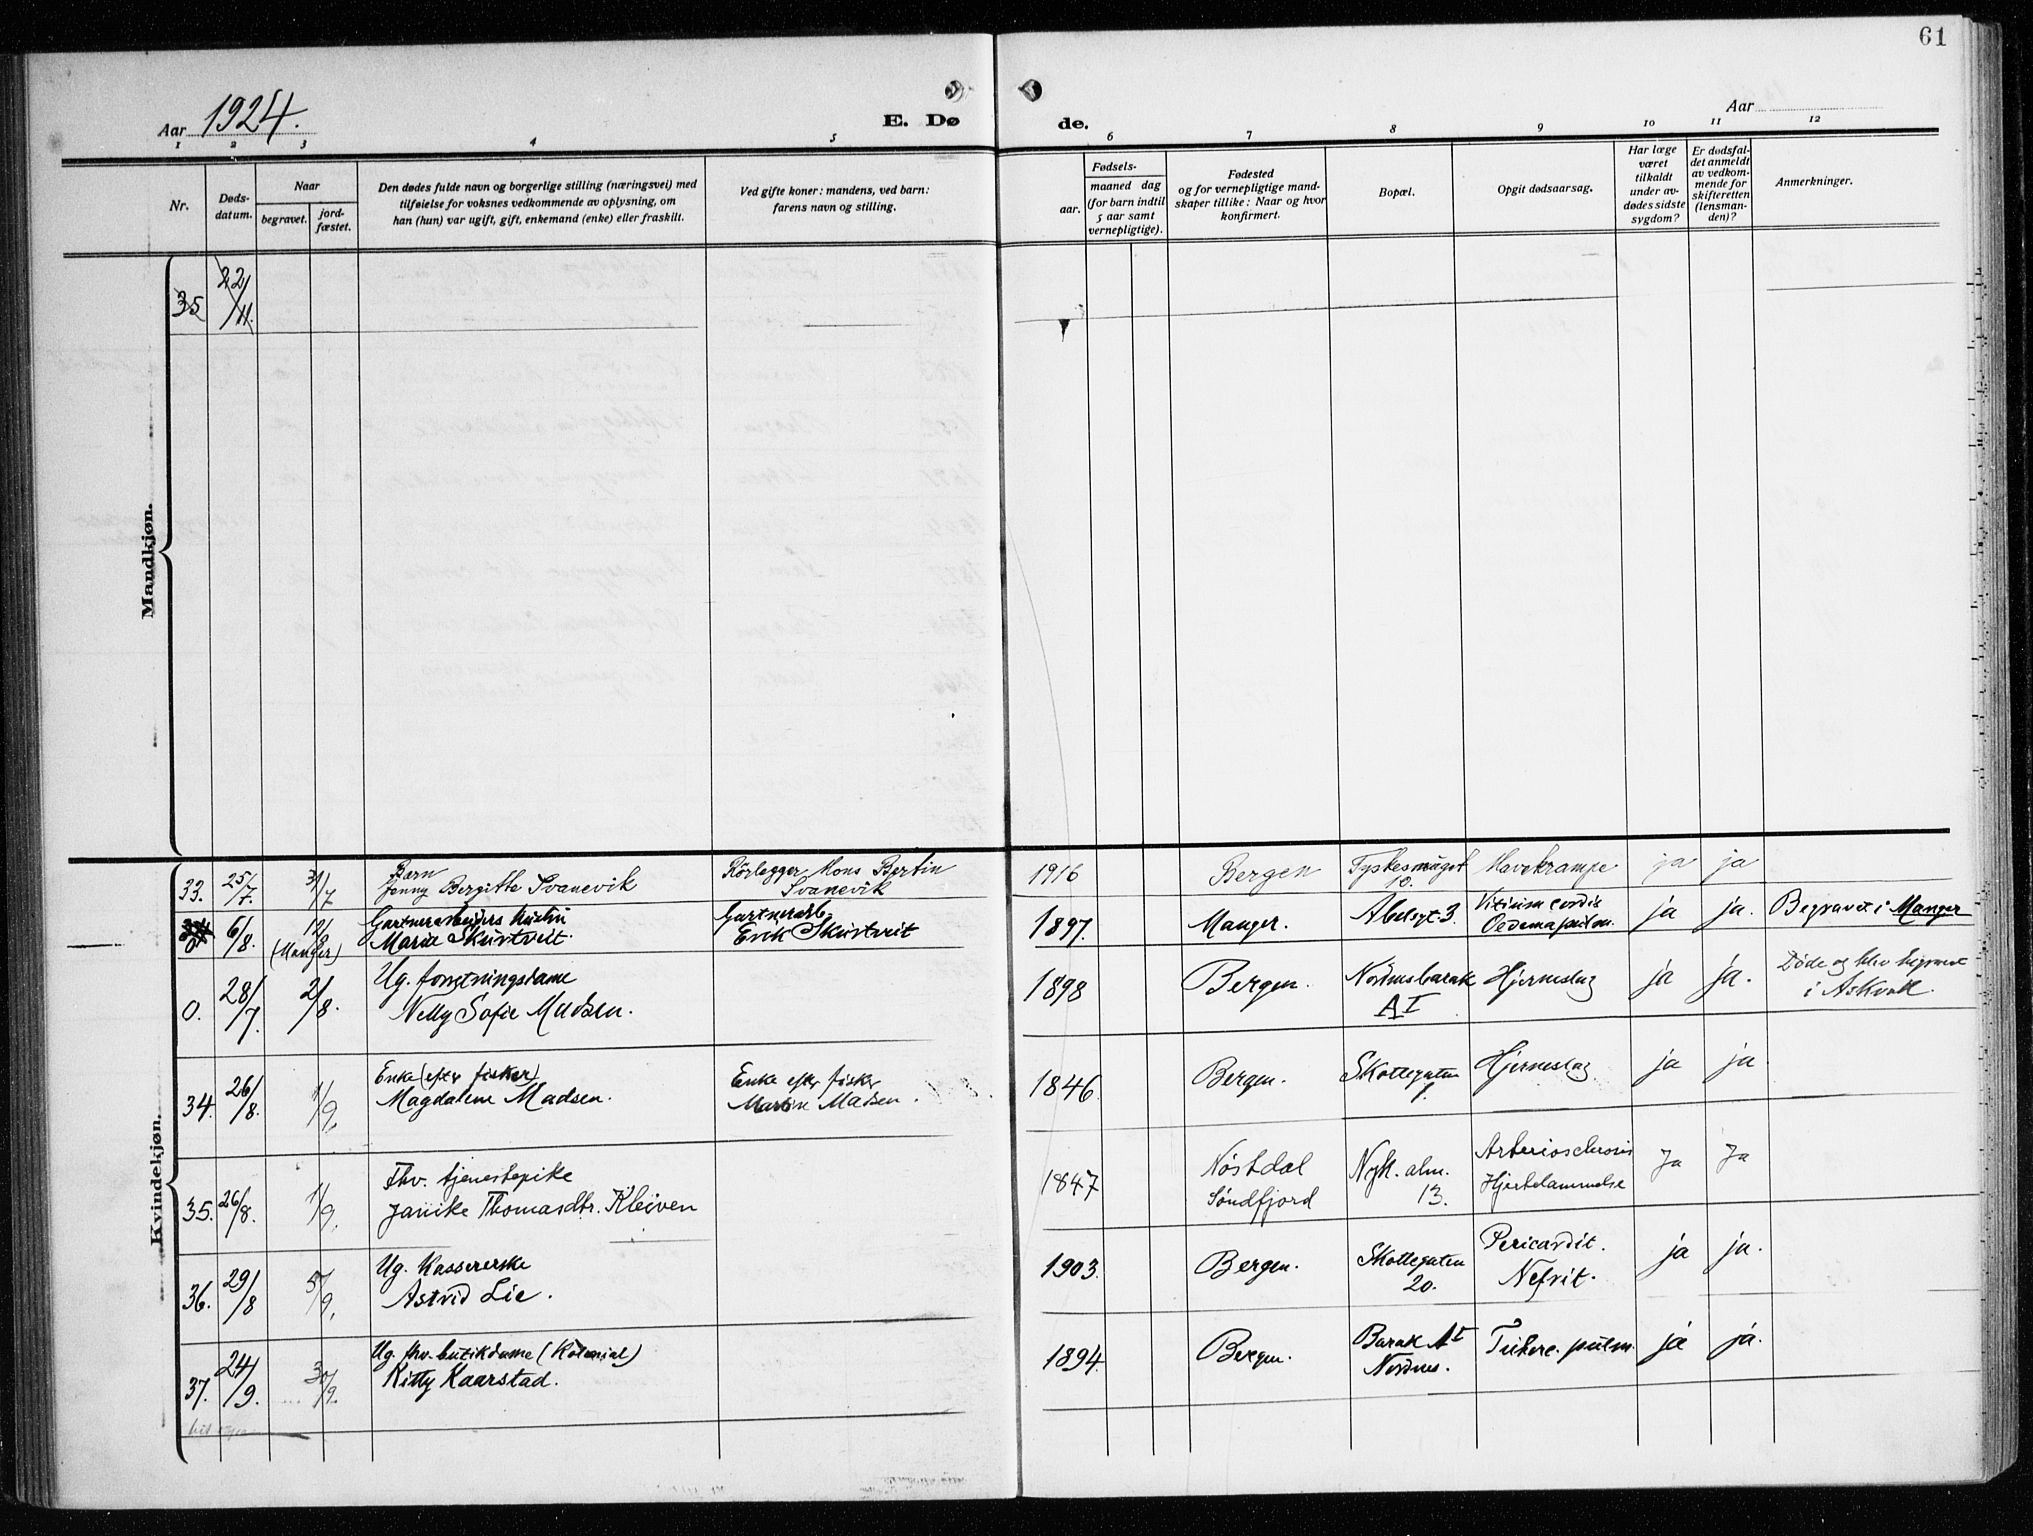 61
Aar 1924.
E. Dø
de.
Aar
1 2 3 4 5 6 7 8 9 10 11 12
Nr.
Døds-
datum.
Naar
begravet.
jord-
fæstet.
Den dødes fulde navn og borgerlige stilling (næringsvei) med
tilføielse for voksnes vedkommende av oplysning, om
han (hun) var ugift, gift, enkemand (enke) eller fraskilt.
Ved gifte koner: mandens, ved barn:
farens navn og stilling.
Fødsels-
aar.
maaned dag
(for barn indtil
5 aar samt
vernepligtige).
Fødested
og for vernepligtige mand-
skaper tillike: Naar og hvor
konfirmert.
Bopæl.
Opgit dødsaarsag.
Har læge
været
tilkaldt
under av-
dødes sidste
sygdom?
Er dødsfal-
det anmeldt
av vedkom-
mende for
skifteretten
(lensman-
den)?
Anmerkninger.
Mandkjøn.
35 22/11.
Kvindekjøn.
33. 25/7. 31/7
Barn
Jenny Bergitte Svanevik
Rörlegger Mons Bertin
Svanevik
1916 Bergen Tyskesmuget
10.
Mavekrampe ja ja
0 6/8. 12/8
(Manger)
Gartnerarbeiders hustru
Marie Skurtveit.
Gartnerarb.
Erik Skurtveit
1897. Manger. Abelsgt. 3.
Vitium cordis
Oedema pulm.
ja ja. Begravet i Manger
0. 28/7. 2/8.
Ug. forretningsdame
Nelly Sofie Madsen.
1898 Bergen. Nordnesbarak
AI
Hjerneslag ja ja.
Döde og blev begravet
i Askvoll.
34. 26/8. 1/9.
Enke (efter fisker)
Magdalene Madsen.
Enke efter fisker
Martin Madsen.
1846. Bergen. Skottegaten
1.
Hjerneslag ja ja.
35. 26/8. 1/9.
Fhv. tjenestepike
Janike Thomasdtr. Kleiven
1847 Nøstdal
Søndfjord
Nyk. alm.
13.
Arteriosclerosis
Hjertelammelse
Ja Ja
36. 29/8 5/9.
Ug. Kassererske
Astrid Lie.
1903. Bergen. Skottegaten
20.
Pericardit.
Nefrit.
ja ja.
37. 24/9. 30/9.
Ug. fhv. butikdame (Kolonial)
Kitty Kaarstad.
1894. Bergen. Barak AI
Nordnes.
Tuberc. pulm. ja ja.